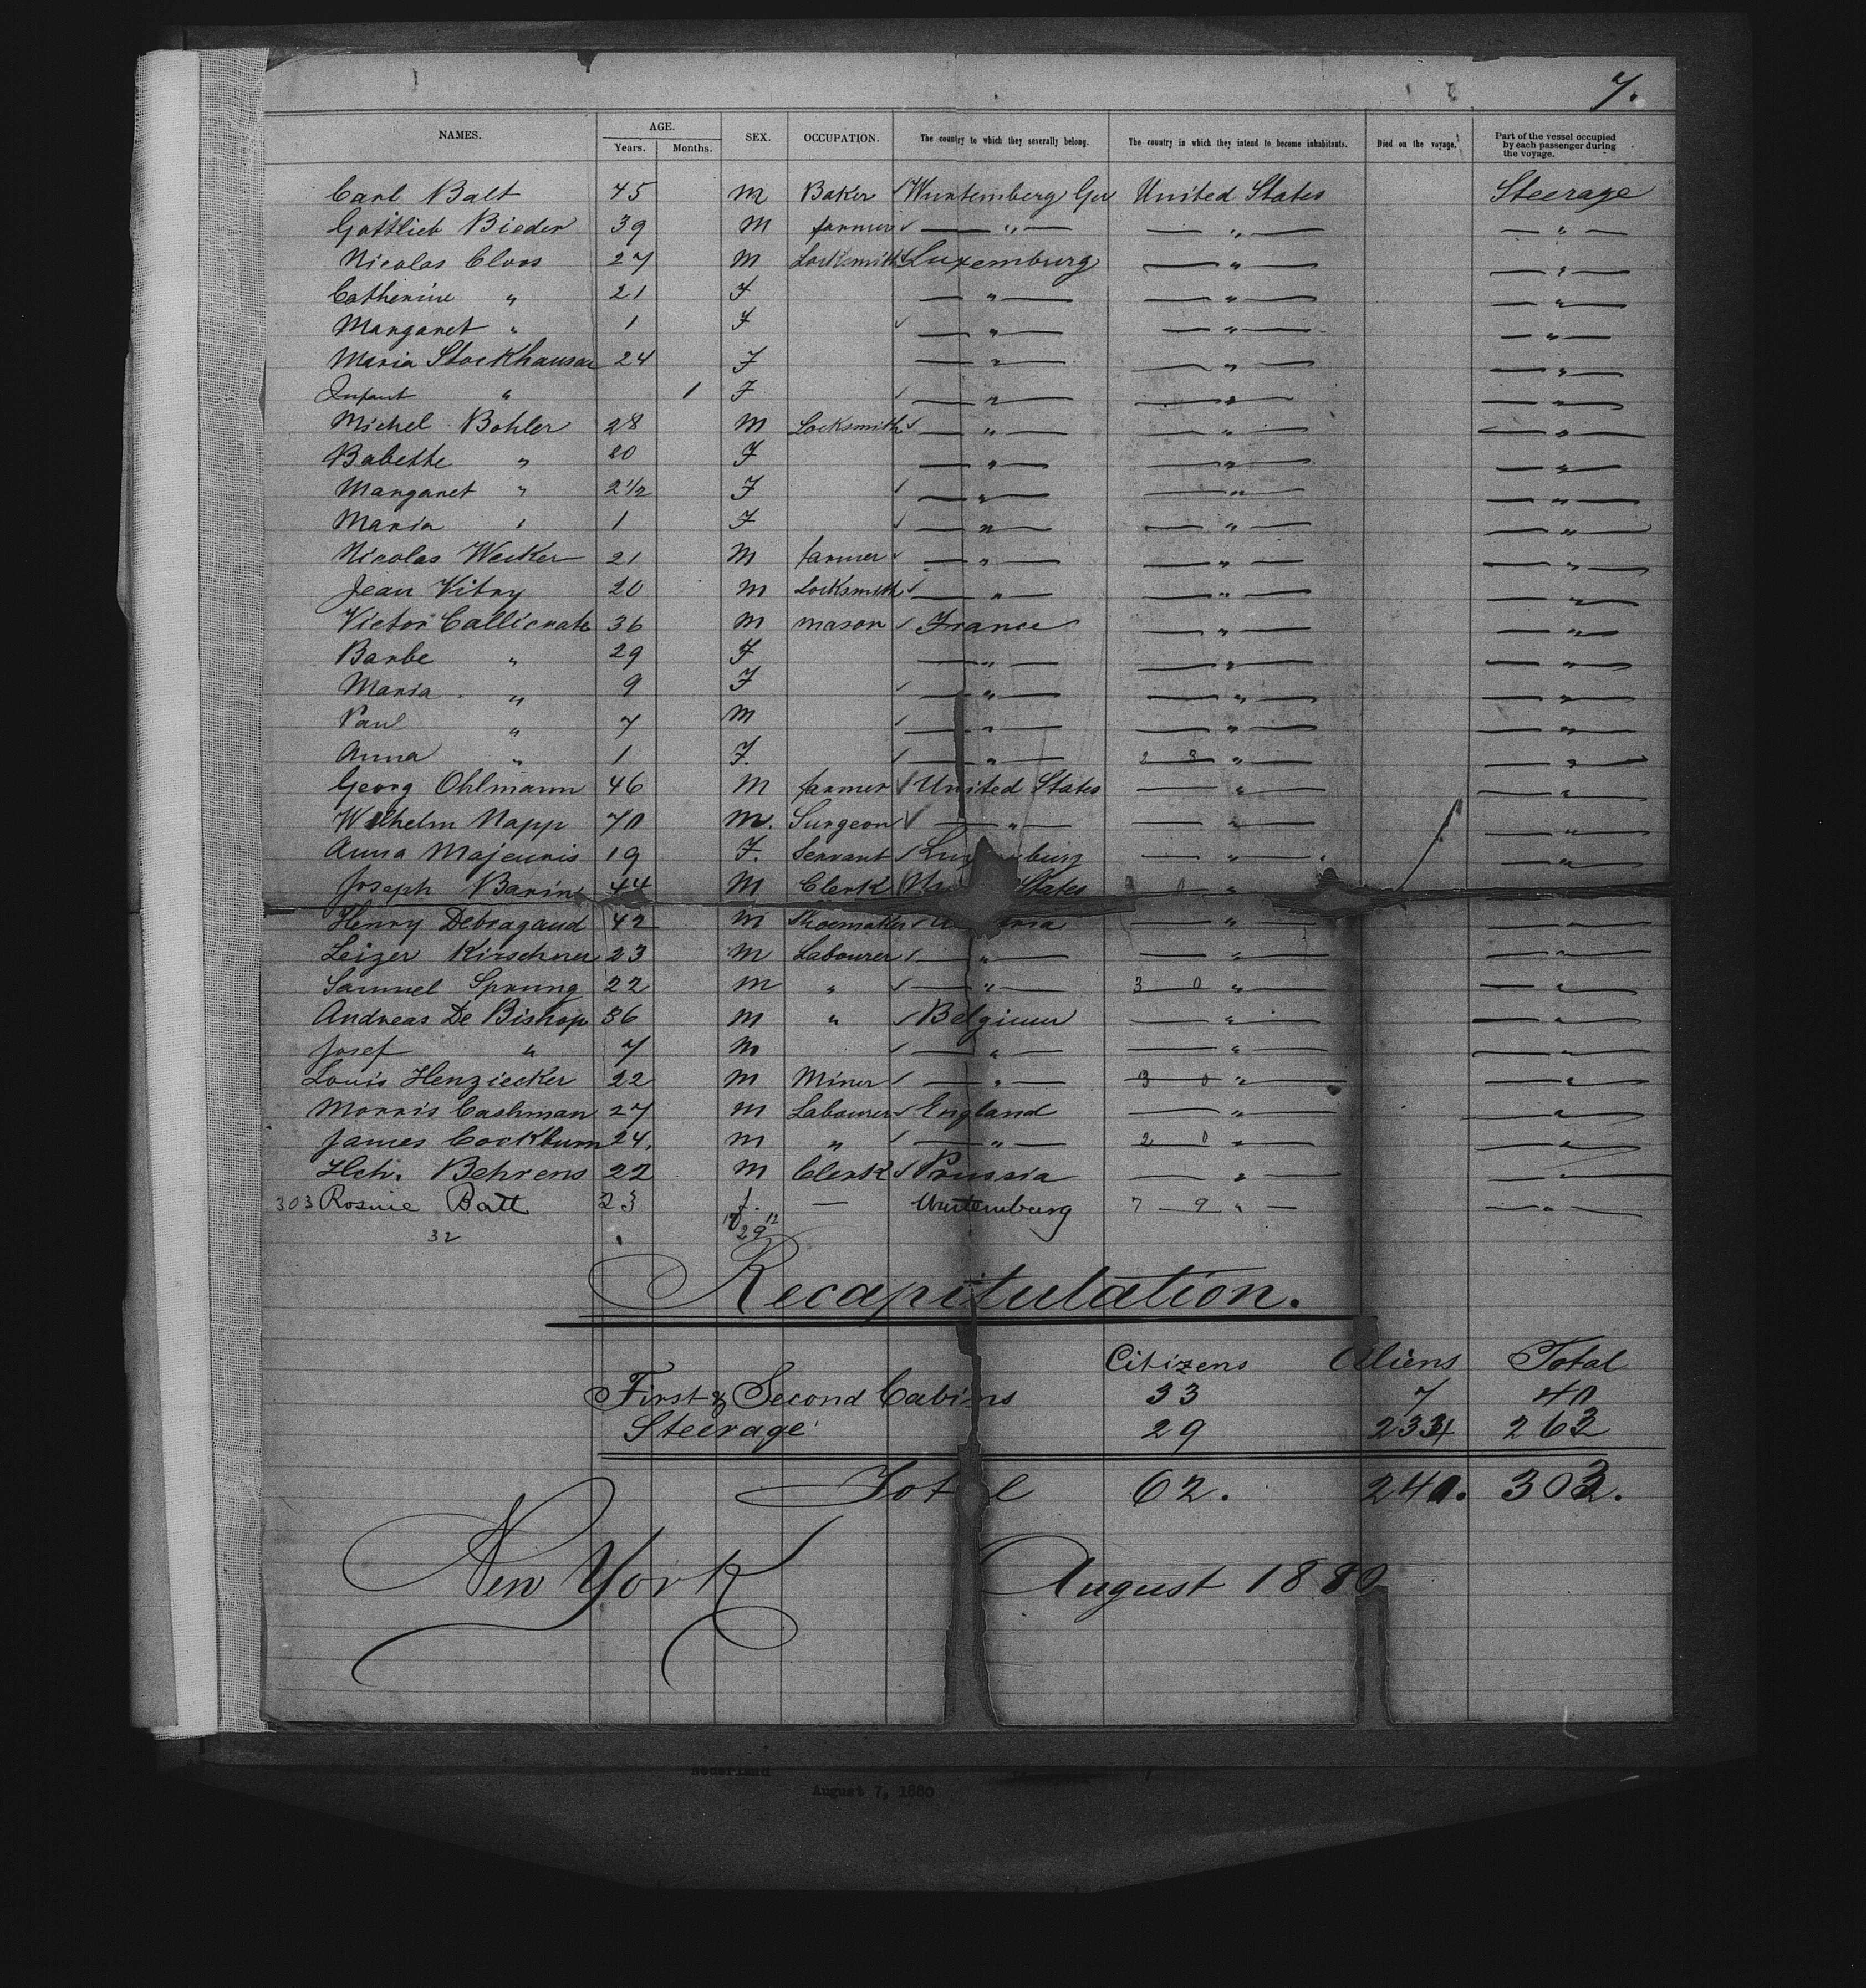 7.
NAMES. AGE. SEX. OCCUPATION. The country to which they severally belong. The country in which they intend to become inhabitants. Died on the voyage. Part of the vessel occupied by each passenger during the voyage.
Years. Months.
Carl Balt 45 M Baker ✓ Wurtemberg Ger United States Steerage
Gottlieb Bieder 39 M farmer ✓ — " — — " — — " —
Nicolas Cloos 27 M Locksmith ✓ Luxemburg — " — — " —
Catherine " 21 F — " — — " — — " —
Margaret " 1 F ✓ — " — — " — — " —
Maria Stockhausen 24 F — " — — " — — " —
Infant " 1 F ✓ — " — — " — — " —
Michel Bohler 28 M Locksmith ✓ — " — — " — — " —
Babette " 20 F — " — — " — — " —
Margaret " 2 1/2 F ✓ — " — — " — — " —
Maria " 1 F ✓ — " — — " — — " —
Nicolas Wecker 21 M farmer ✓ — " — — " — — " —
Jean Vitry 20 M Locksmith ✓ — " — — " — — " —
Victor Callicrate 36 M mason ✓ France — " — — " —
Barbe " 29 F — " — — " — — " —
Maria " 9 F ✓ — " — — " — — " —
Paul " 7 M ✓ — " — — " — — " —
Anna " 1 F. ✓ — " — 2 8 " — — " —
Georg Ohlmann 46 M farmer ✓ United States — " — — " —
Wilhelm Napp 70 M. Surgeon ✓ — " — — " — — " —
Anna Majeuris 19 F. Servant ✓ Luxemburg — " — — " —
Joseph Barin 44 M Clerk States "
Henry Debragaud 42 M Shoemaker ✓ — " — — " —
Leizer Kirschner 23 M Labourer ✓ — " — — " — — " —
Samuel Sprung 22 M " ✓ — " — 3 0 " — — " —
Andreas De Bishop 36 M " ✓ Belgium — " — — " —
Josef " 7 M ✓ — " — — " — — " —
Louis Henziecker 22 M Miner ✓ — " — 3 0 " — — " —
Morris Cashman 27 M Labourer ✓ England — " — — " —
James Cockburn 24. M " ✓ — " — 2 0 " — — " —
Hch. Behrens 22 M Clerk ✓ Prussia — " — — " —
303 Rosine Batt 23 f. — Wurtemburg 7 9 " — — " —
32 17 12
29
Recapitulation.
Citizens Aliens Total
First & Second Cabins 33 7 40
Steerage 29 234 263
Total 62. 240. 303.
New York August 1880
Nederland
August 7, 1880